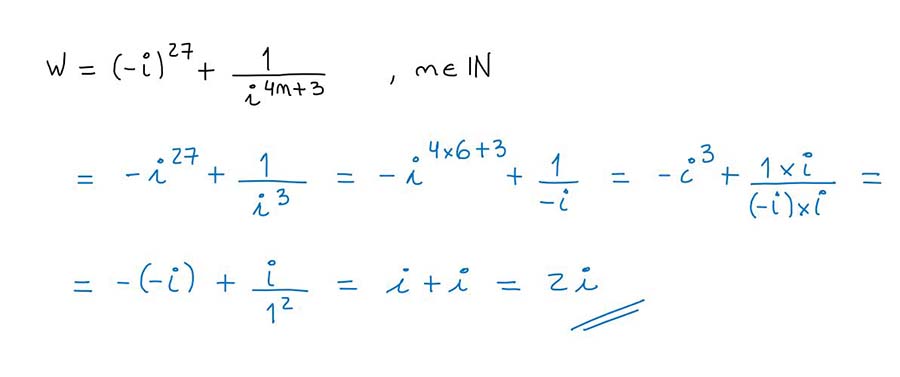 W = (-i)^27 + 1/i^(4m+3) , m ∈ IN
= -i^27 + 1/i^3 = -i^(4×6+3) + 1/-i = -i^3 + (1×i)/((-i)×i) =
= -(-i) + i/1^2 = i + i = 2i